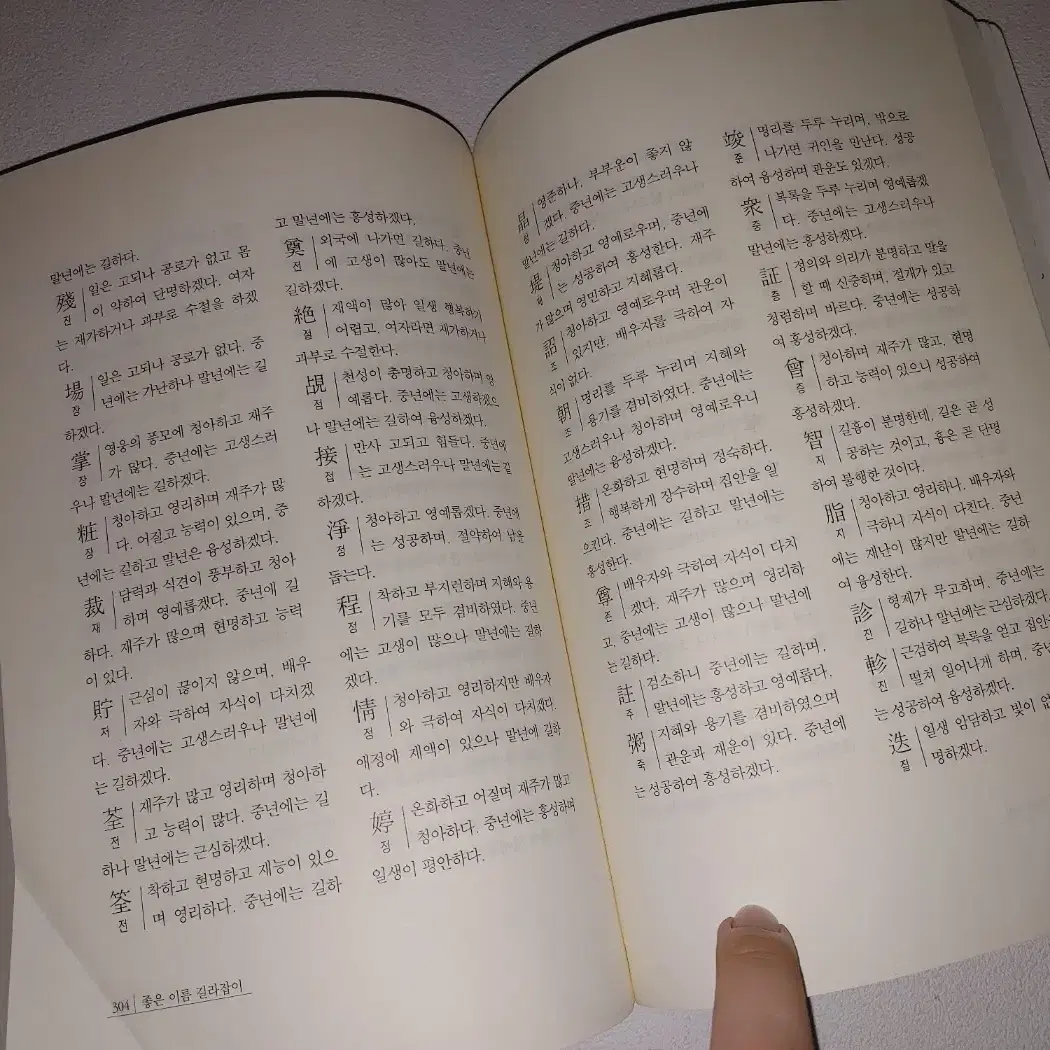 말년에는 길하다.
殘 일은 고되나 공로가 없고 몸
잔 이 약하여 단명하겠다. 여자
는 재가하거나 과부로 수절을 하겠
다.
場 일은 고되나 공로가 없다. 중
장 년에는 가난하나 말년에는 길
하겠다.
掌 영웅의 풍모에 청아하고 재주
장 가 많다. 중년에는 고생스러
우나 말년에는 길하겠다.
粧 청아하고 영리하며 재주가 많
장 다. 어질고 능력이 있으며, 중
년에는 길하고 말년은 융성하겠다.
裁 담력과 식견이 풍부하고 청아
재 하며 영예롭겠다. 중년에 길
하다. 재주가 많으며 현명하고 능력
이 있다.
貯 근심이 끊이지 않으며, 배우
저 자와 극하여 자식이 다치겠
다. 중년에는 고생스러우나 말년에
는 길하겠다.
荃 재주가 많고 영리하며 청아하
전 고 능력이 많다. 중년에는 길
하나 말년에는 근심하겠다.
筌 착하고 현명하고 재능이 있으
전 며 영리하다. 중년에는 길하
고 말년에는 흥성하겠다.
奠 외국에 나가면 길하다. 중년
전 에 고생이 많아도 말년에는
길하겠다.
絶 재액이 많아 일생 행복하기
절 어렵고, 여자라면 재가하거나
과부로 수절한다.
覘 천성이 총명하고 청아하며 영
점 예롭다. 중년에는 고생하겠으
나 말년에는 길하여 융성하겠다.
接 만사 고되고 힘들다. 중년에
접 는 고생스러우나 말년에는 길
하겠다.
淨 청아하고 영예롭겠다. 중년에
정 는 성공하며, 절약하여 남을
돕는다.
程 착하고 부지런하며 지혜와 용
정 기를 모두 겸비하였다. 중년
에는 고생이 많으나 말년에는 길하
겠다.
情 청아하고 영리하지만 배우자
정 와 극하여 자식이 다치겠다.
애정에 재액이 있으나 말년에 길하
다.
婷 온화하고 어질며 재주가 많고
정 청아하다. 중년에는 흥성하며
일생이 평안하다.
304 좋은 이름 길라잡이
晶 영준하나, 부부운이 좋지 않
정 겠다. 중년에는 고생스러우나
말년에는 길하다.
堤 청아하고 영예로우며, 중년에
는 성공하여 흥성한다. 재주
가 많으며 영민하고 지혜롭다.
詔 청아하고 영예로우며 관운이
조 있지만, 배우자를 극하여 자
식이 없다.
朝 명리를 두루 누리며 지혜와
조 용기를 겸비하였다. 중년에는
고생스러우나 청아하며 영예로우니
말년에는 융성하겠다.
措 온화하고 현명하며 정숙하다.
조 행복하게 장수하며 집안을 일
으킨다. 중년에는 길하고 말년에는
흥성한다.
尊 배우자와 극하여 자식이 다치
존 겠다. 재주가 많으며 영리하
고, 중년에는 고생이 많으나 말년에
는 길하다.
註 검소하니 중년에는 길하며,
주 말년에는 흥성하고 영예롭다,
粥 지혜와 용기를 겸비하였으며
죽 관운과 재운이 있다. 중년에
는 성공하여 흥성하겠다.
竣 명리를 두루 누리며, 밖으로
준 나가면 귀인을 만난다. 성공
하여 융성하며 관운도 있겠다.
衆 복록을 두루 누리며 영예롭겠
중 다. 중년에는 고생스러우나
말년에는 흥성하겠다.
証 정의와 의리가 분명하고 말을
증 할 때 신중하며, 절개가 있고
청렴하며 바르다. 중년에는 성공하
여 흥성하겠다.
曾 청아하며 재주가 많고, 현명
증 하고 능력이 있으니 성공하여
흥성하겠다.
智 길흉이 분명한데, 길은 곧 성
지 공하는 것이고, 흉은 곧 단명
하여 불행한 것이다.
脂 청아하고 영리하나. 배우자와
지 극하니 자식이 다친다. 중년
에는 재난이 많지만 말년에는 길하
여 융성한다.
診 형제가 무고하며, 중년에는
진 길하나 말년에는 근심하겠다.
軫 근검하여 부록을 얻고 집안을
진 떨쳐 일어나게 하며, 중년
는 성공하여 융성하겠다.
迭 일생 암담하고 빛이 없
질 명하겠다.